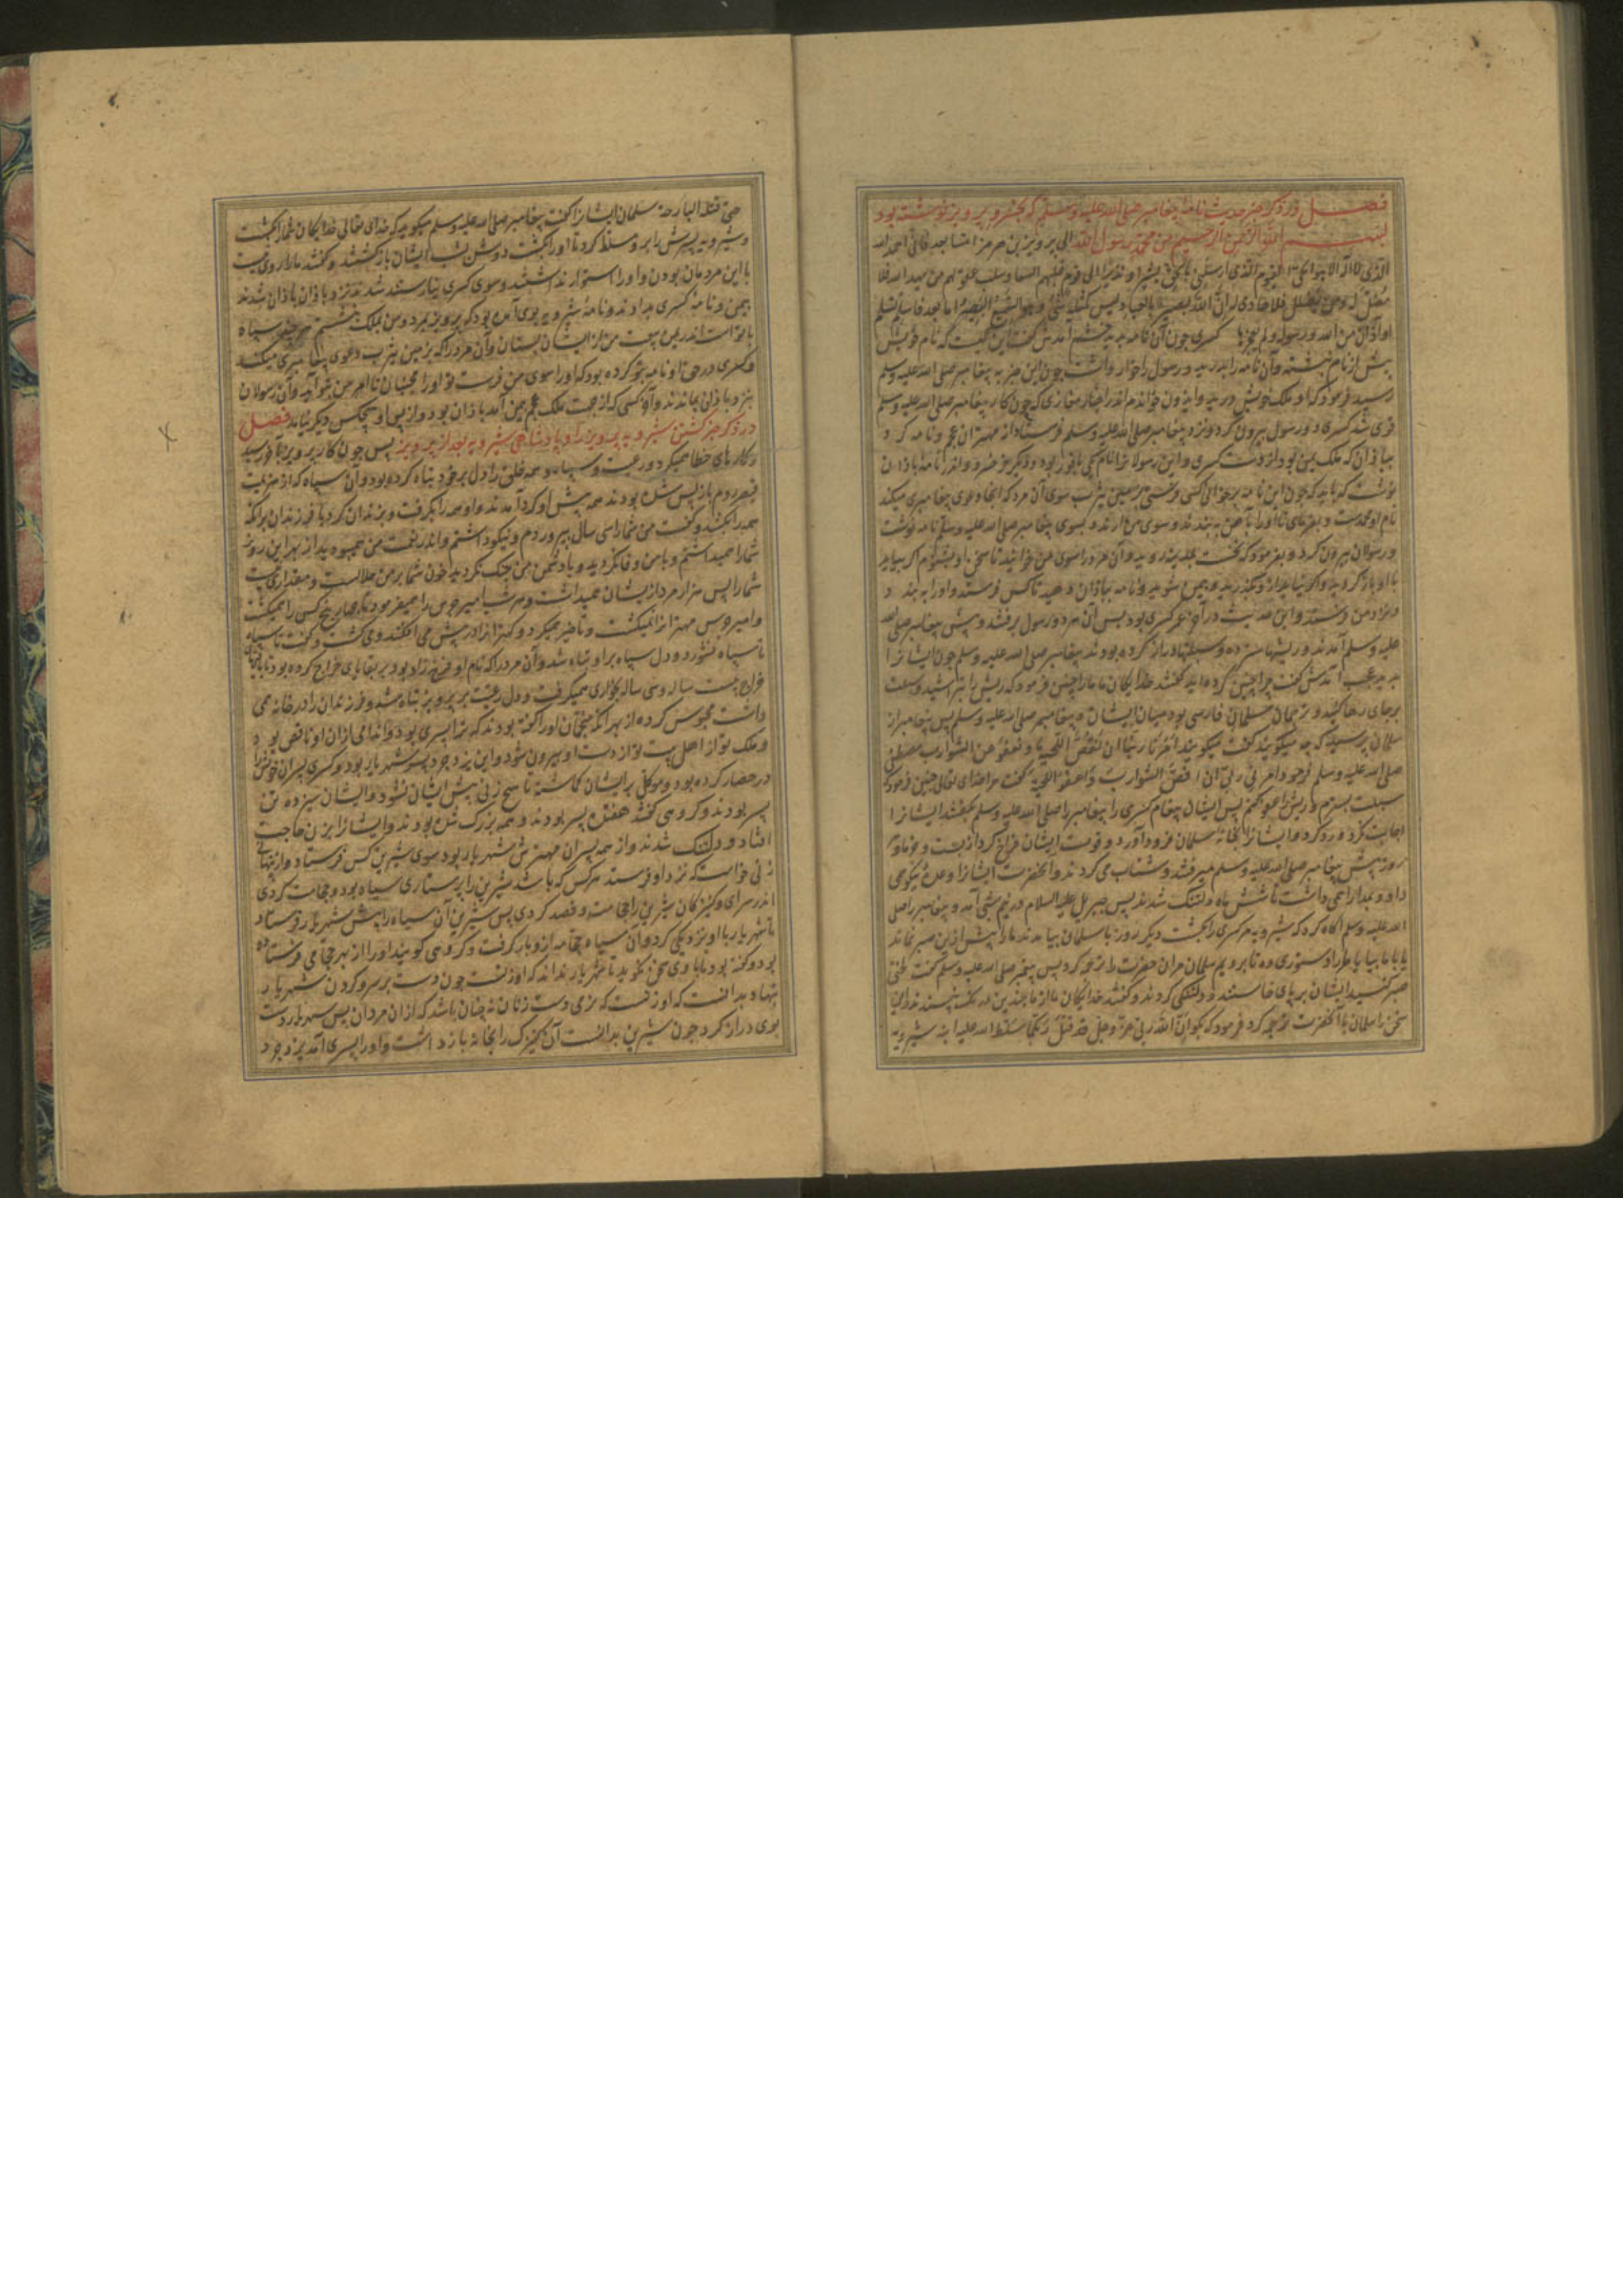 فصل در ذکر خبر حدیث نامهٔ پیغامبر صلی الله علیه وسلم که بخسرو پرویز نوشته بود
بسم الله الرحمن الرحیم من محمد رسول الله الی پرویز بن هرمز اما بعد فانی احمد الله
الذی لا اله الا هو الحی القیوم الذی ارسلنی بالحق بشیرا و نذیرا الی قوم غلبهم السفه وسلب عقولهم من یهد الله فلا
مضل له ومن یضلل فلا هادی له ان الله بصیر بالعباد لیس کمثله شیء وهو السمیع البصیر اما بعد فاسلم تسلم
او ائذن من الله ورسوله ولم یعجزهما کسری چون آن نامه بدید خشم آمدش گفت این کیست که نام خویش
پیش از نام نبشته وآن نامه را بدرید ورسول را خوار داشت چون این خبر به پیغامبر صلی الله علیه وسلم
رسید فرمود که او ملک خویش درید وایدون خواندم اندر اخبار مغازی که چون کار پیغامبر صلی الله علیه وسلم
قوی شد کسری دو رسول بیرون کرد ونزد پیغامبر صلی الله علیه وسلم فرستاد از مهتران عجم ونامه کرد
بباذان که ملک یمن بود از دست کسری واین رسولانرا نام یکی بابویه بود ودیگر خرخسره واندر نامه باذان
نوشت که باید که چون این نامه برخوانی کسی فرستی بزمین یثرب سوی آن مرد که آنجا دعوی پیغامبری میکند
نام او محمد است وبفرمای تا او را بآهن به بندند وسوی من آرند وبسوی پیغامبر صلی الله علیه وسلم نامه نوشت
ورسولان بیرون کرد وبفرمود که نخست بمدینه روید وآن مرد را سوی من خوانید تا سخن او بشنوم اگر بیاید
با او باز گردید واگر نیاید از و بگذرید وبیمن شوید ونامه بباذان دهید تا کس فرستد واورا به بندد
ونزد من فرستد واین حدیث در آخر عمر کسری بود پس آن هر دو رسول برفتند وپیش پیغامبر صلی الله
علیه وسلم آمدند وریشها سترده وسبلتها دراز کرده بودند پیغامبر صلی الله علیه وسلم چون ایشانرا
بدید عجب آمدش گفت چرا چنین کرده اید گفتند خدایگان ما مارا چنین فرمود که ریش را بتراشید وسبلت
برجای رها کنید وترجمان سلمان فارسی بود میان ایشان وپیغامبر صلی الله علیه وسلم پس پیغامبر از
سلمان پرسید که چه میگویند گفت میگویند امرنا ربنا ان نقص اللحیة ونعفو عن الشوارب مصطفی
صلی الله علیه وسلم فرمود امرنی ربی ان اقص الشوارب واعفو اللحیة گفت مرا خدای تعالی چنین فرمود که
سبلت بسترم وریش را عفو کنم پس ایشان پیغام کسری را پیغامبر را صلی الله علیه وسلم بگفتند ایشانرا
اجابت نکرد ورد کرد وایشانرا بخانهٔ سلمان فرود آورد وقوت ایشان فراخ کرد از بیست
روز پیش پیغامبر صلی الله علیه وسلم میرفتند وشتاب می کردند وآنحضرت ایشانرا وعدهٔ نیکو می
داد ومدارا همی داشت تا شش ماه ودلتنگ شدند پس جبریل علیه السلام در نیم شبی آمد وپیغامبر را صلی
الله علیه وسلم آگاه کرد که شیرویه مر کسری را بکشت دیگر روز با سلمان بیامدند مارا بیش ازین صبر نماند
یا با ما بیا یا مارا دستوری ده تا برویم سلمان مر آن حضرت را ترجمه کرد پس پیغمبر صلی الله علیه وسلم گفت
صبر کنید ایشان بر پای خاستند ودلتنگی کردند وگفتند خدایگان ما از ما چندین
سخن را سلمان با آنحضرت ترجمه کرد فرمود که بگو ان الله ربی عز وجل قد قتل ربکما سلط الله علیه ابنه شیرویه
حتی قتله البارحة سلمان ایشانرا گفت پیغامبر صلی الله علیه وسلم میگوید که خدای تعالی خدایگان شمارا بکشت
وشیرویه پسرش را برو مسلط کرد تا اورا بکشت دوش نشب ایشان بازگشتند وگفتند مارا روی نیست
با این مردمان بودن واورا استوار نداشتند وسوی کسری نیارستند شد نزد باذان شدند
بیمن ونامهٔ کسری بدادند ونامهٔ شیرویه بوی آمده بود که پرویز بمرد ومن بملک بنشستم هر چند سپاه
با تو است اندر یمن بیعت من از ایشان بستان وآن مرد را که بزمین یثرب دعوی پیغامبری میکند
وکسری در حق او نامه بتو کرده بود که اورا سوی من فرست تو اورا مجنبان تا امر من بتو آید وآن رسولان
نزد باذان بماندند وآخر کسی که از جهت ملک عجم بیمن آمد باذان بود واز پس او هیچکس دیگر نیامد فصل
در ذکر خبر کشتن شیرویه پرویز را وپادشاهی شیرویه بعد از پرویز پس چون کار پرویز بآخر رسید
وکارهای خطا میکرد ورعیت وسپاه وهمه خلق را دل بر خود تباه کرده بود وآن سپاه که از هزیمت
قیصر روم باز پس شده بودند همه پیش او گرد آمدند واو همه را بگرفت وبزندان کرد
همه را بکشد وگفت من شمارا سی سال بپروردم ونیکو داشتم واندر نعمت من همیبودید از بهر این روز
شمارا همیداشتم وبا من وفا نکردید وبا دشمن من جنگ نکردید خون شما بر من حلالست ومقدار بیست
شمارا پس هزار مرد از ایشان همیداشت وهر شب امیر حرس را همیفرمود تا چهار پنج کس را همیکشت
وامیر حرس مهترانرا نمیکشت وتاخیر همیکرد وکهترانرا در پیش می افکند ومی کشت وگفت تا سپاه
تا سپاه نشورد ودل سپاه برو تباه شد وآن مرد را که نام او فرخ زاد بود بر بقایای خراج کرده بود تا بقایای
خراج بیست ساله وسی ساله بخواری همیگرفت ودل رعیت بر پرویز تباه شد وفرزندان را در خانه همی
داشت محبوس کرده از بهر آنکه منجمان اورا گفته بودند که ترا پسری بود واندامی از آن او ناقص بود
وملک تو از اهل بیت تو از دست او بیرون شود واین یزدجرد پسر شهریار بود وکسری پسران خویش را
در حصار کرده بود وموکل بر ایشان گماشته تا هیچ زنی پیش ایشان نشود وایشان سیزده تن
پسر بودند وگروهی گفتند هفده پسر بودند وهمه بزرگ شده بودند وایشانرا بزن حاجت
افتاد ودلتنگ شدند واز همه پسران مهترش شهریار بود سوی شیرین کس فرستاد واز پنهانی
زنی خواست که نزد او فرستد هر کس که باشد شیرین را پرستاری سیاه بود وحجامت کردی
اندر سرای وکنیزکان شیرین را حجامت وفصد کردی پس شیرین آن سیاه را پیش شهریار فرستاد
تا شهریار با او نزدیکی کرد وآن سیاه حجامه ازو بار گرفت وگروهی گویند اورا از بهر حجامی فرستاده
بود وگفته بود تا با وی سخن نگوید تا شهریار نداند که او زنست چون دست بر سر وگردن شهریار
بنهاد بدانست که او زنست که نرمی دست زنان نه چنان باشد که از آن مردان پس شهریار دست
بوی دراز کرد چون شیرین بدانست آن کنیزک را بخانه باز داشت واورا پسری آمد یزدجرد